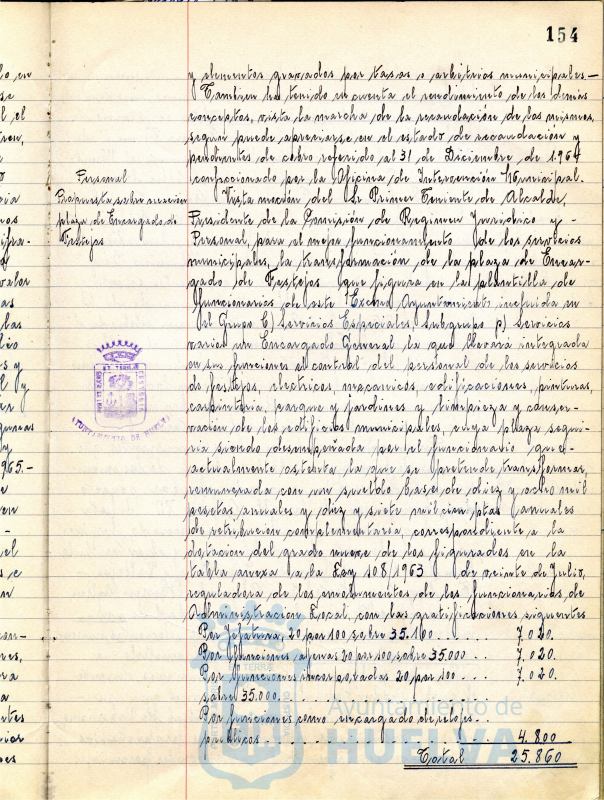 154
y elementos gravados por tasas o arbitrios municipales.-
Tambien ha tenido en cuenta el rendimiento de los demás
conceptos, vista la marcha de la recaudación de los mismos,
segun puede apreciarse en el estado de recaudación y
pendientes de cobro referido al 31 de Diciembre de 1.964
confeccionado por la Oficina de Intervención Municipal.
Personal
Propuesta sobre
plaza de Encargado de
Festejos
Vista moción del Sr Primer Teniente de Alcalde,
Presidente de la Comisión de Regimen Juridico y
Personal, para el mejor funcionamiento de los servicios
municipales, la transformación de la plaza de Encar-
gado de Festejos que figura en la plantilla de
funcionarios de este Excmo Ayuntamiento incluida en
el Grupo C) Servicios Especiales, Subgrupo p) Servicios
varios un Encargado General la que llevará integrada
en sus funciones el control del personal de los servicios
de festejos, electricos, mecanicos, edificaciones, pinturas,
carpinteria, parque y jardines y limpieza y conser-
vación de los edificios municipales, cuya plaza segui-
ria siendo desempeñada por el funcionario que
actualmente ostenta la que se pretende transformar,
remunerada con un sueldo base de diez y ocho mil
pesetas anuales y diez y siete mil cien ptas anuales
de retribucion complementaria, correspondiente a la
dotacion del grado nueve de los figurados en la
tabla anexa a la Ley 108/1963 de veinte de Julio,
reguladora de los emolumentos de los funcionarios de
Administración Local, con las gratificaciones siguientes
Por Jefatura, 20 por 100, sobre 35.100 ...... 7.020.
Por funciones ajenas 20 por 100 sobre 35.000 ... 7.020.
Por funciones incorporadas 20 por 100 ... 7.020.
sobre 35.000.................
Por funciones como encargado de relojes..
publicos ................ 4.800
Total 25.860
AYUNTAMIENTO DE HUELVA
Ayuntamiento de
HUELVA